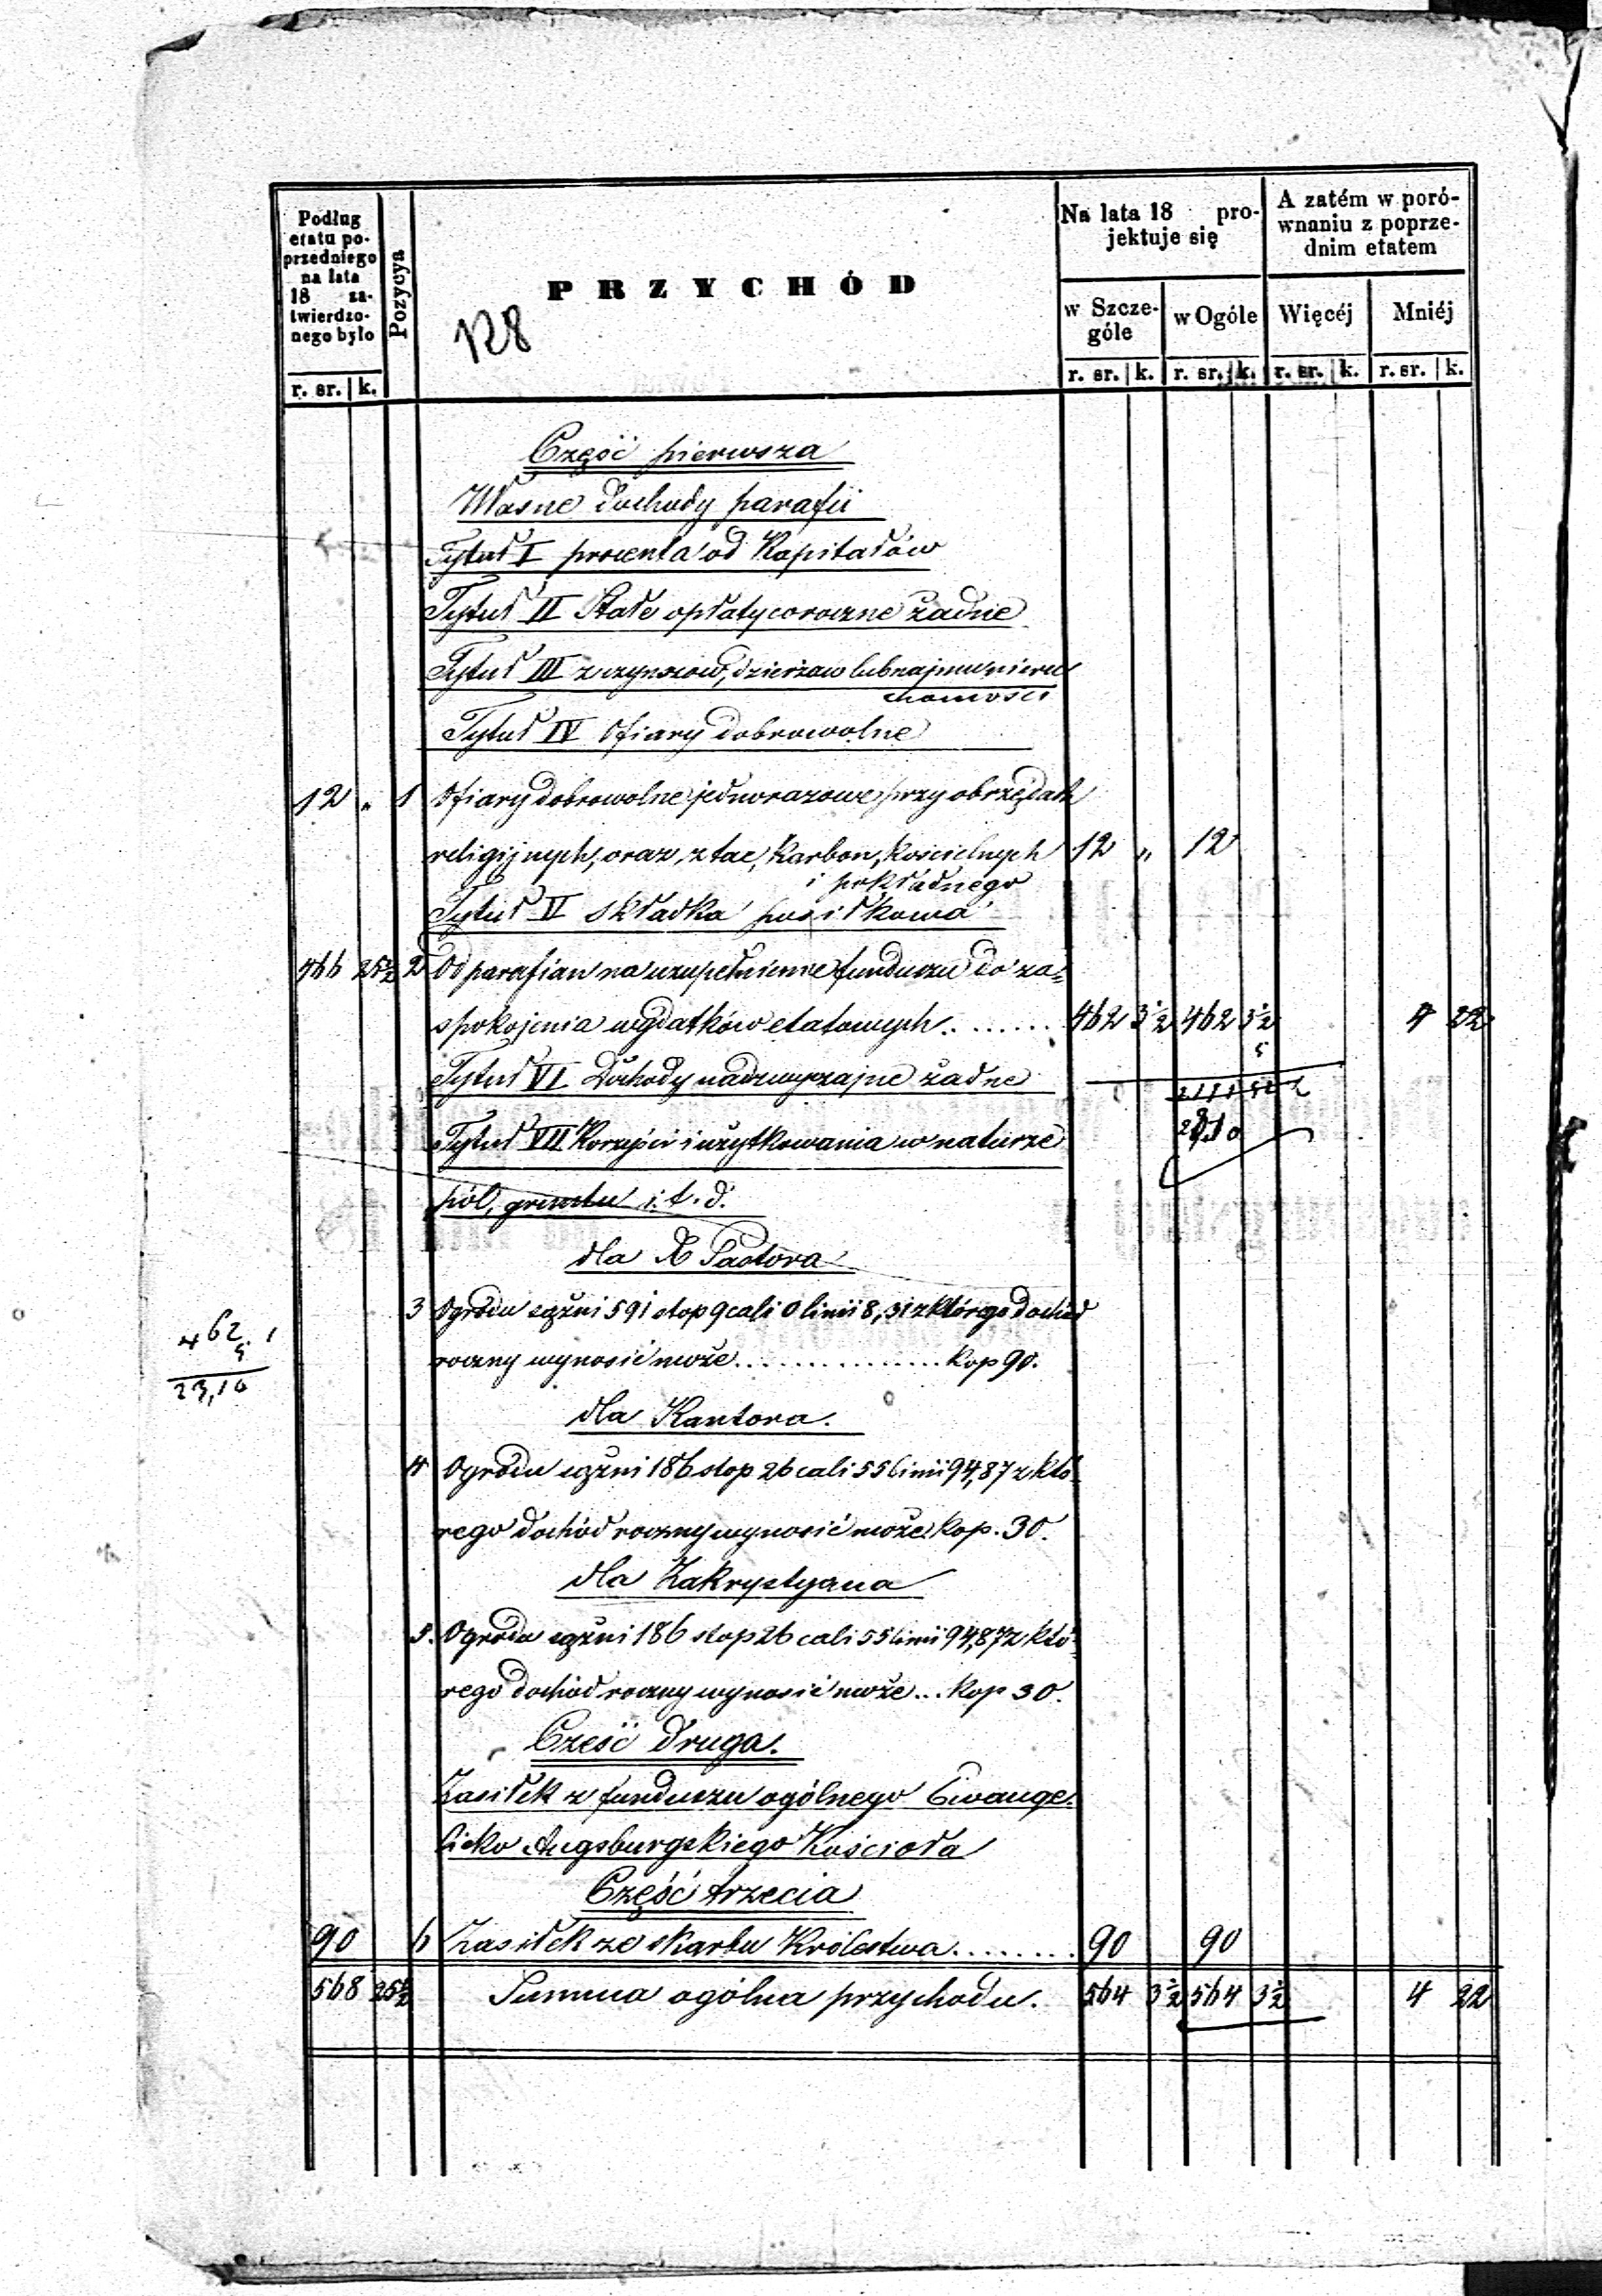 Podług
etatu po-
przedniego
na lata
18 za-
twierdzo-
nego było
r. sr. k.
Pozycya
PRZYCHÓD
128
Na lata 18 pro-
jektuje się
w Szcze-
góle
r. sr. k.
w Ogóle
r. sr. k.
A zatém w poró-
wnaniu z poprze-
dnim etatem
Więcéj
r. sr. k.
Mniéj
r. sr. k.
Część pierwsza
Własne dochody parafii
Tytuł I procenta od Kapitałów
Tytuł II Stałe opłaty coroczne żadne
Tytuł III z czynszów, dzierżaw lub najmu nieru
chomości
Tytuł IV Ofiary dobrowolne
12 " 1 Ofiary dobrowolne jednorazowe przy obrzędach
religijnych, oraz z tac, Karbon, kościelnych 12 " 12
i pokładnego
Tytuł V składka posiłkowa
466 25½ 2 Od parafian na uzupełnienie funduszu do za=
spokojenia wydatków etatowych........ 462 3½ 462 3½ 4 22
5
Tytuł VI Dochody nadzwyczajne żadne
Tytuł VII Korzyści i użytkowania w naturze
pól, gruntu i. t. d.
dla X Pastora
3 Ogrodu sążni 591 stop 9 cali 0 linii 8,31 z którego dochód
roczny wynosić może............... Kop 90.
462. 1
5
23,10
dla Kantora.
4 Ogrodu sążni 186 stop 26 cali 55 linii 94,87 z któ-
rego dochód roczny wynosić może Kop. 30.
dla Zakrystyana
5. Ogrodu sążni 186 stop 26 cali 55 linii 94,87 z któ-
rego dochód roczny wynosić może... Kop 30.
Cześć druga.
Zasiłek z funduszu ogólnego Ewange-
licko Augsburgskiego Kościoła
Część trzecia
90 6 Zasiłek ze skarbu Królestwa........ 90 90
568 25½ Summa ogólna przychodu. 564 3½ 564 3½ 4 22